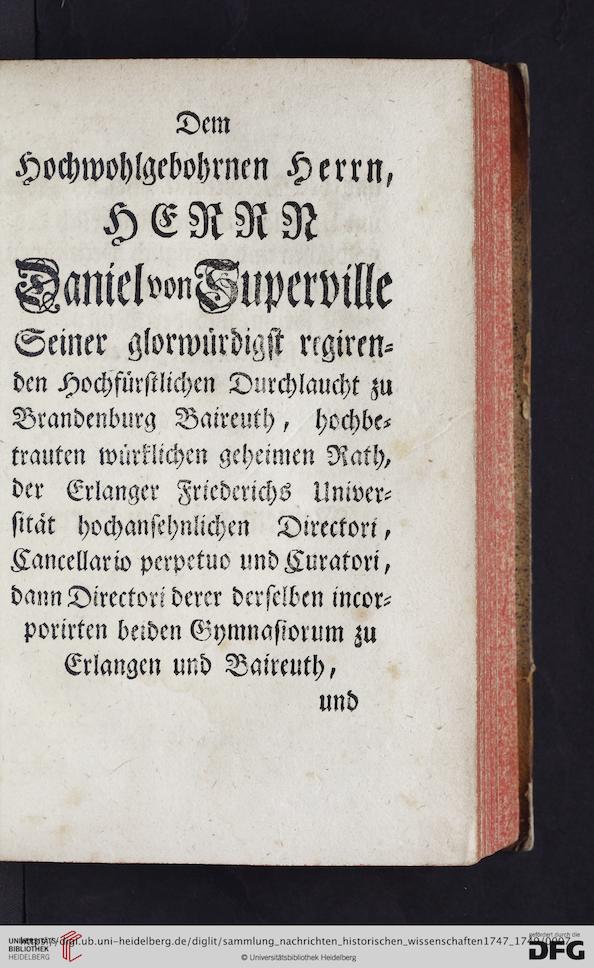 Dem
Hochwohlgebohrnen Herrn,
HERRN
Daniel von Superville
Seiner glorwürdigst regiren-
den Hochfürstlichen Durchlaucht zu
Brandenburg Baireuth, hochbe-
trauten würklichen geheimen Rath,
der Erlanger Friederichs Univer-
sität hochansehnlichen Directori,
Cancellario perpetuo und Curatori,
dann Directori derer derselben incor-
porirten beiden Gymnasiorum zu
Erlangen und Baireuth,
und
UNIVERSITÄTS-
BIBLIOTHEK
HEIDELBERG
digi.ub.uni-heidelberg.de/diglit/sammlung_nachrichten_historischen_wissenschaften1747_1749/0007
© Universitätsbibliothek Heidelberg
gefördert durch die
DFG